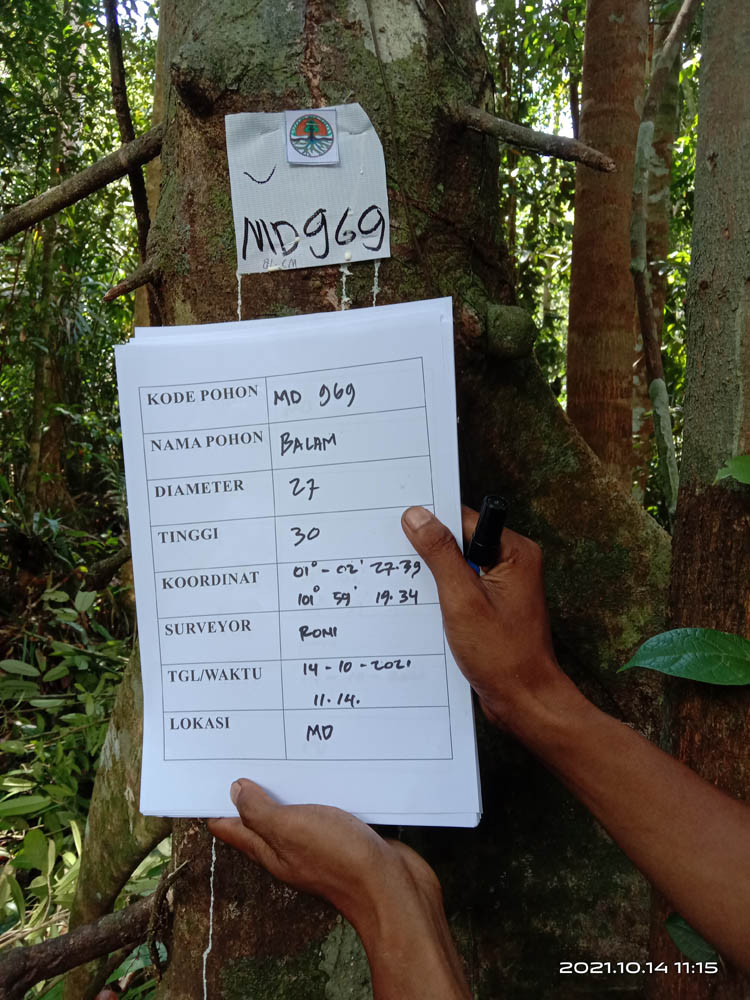 MD969
KODE POHON MD 969
NAMA POHON BALAM
DIAMETER 27
TINGGI 30
KOORDINAT 01° - 02' 27.39
101° 59' 19.34
SURVEYOR RONI
TGL/WAKTU 14 - 10 - 2021
11.14.
LOKASI MD
2021.10.14 11:15